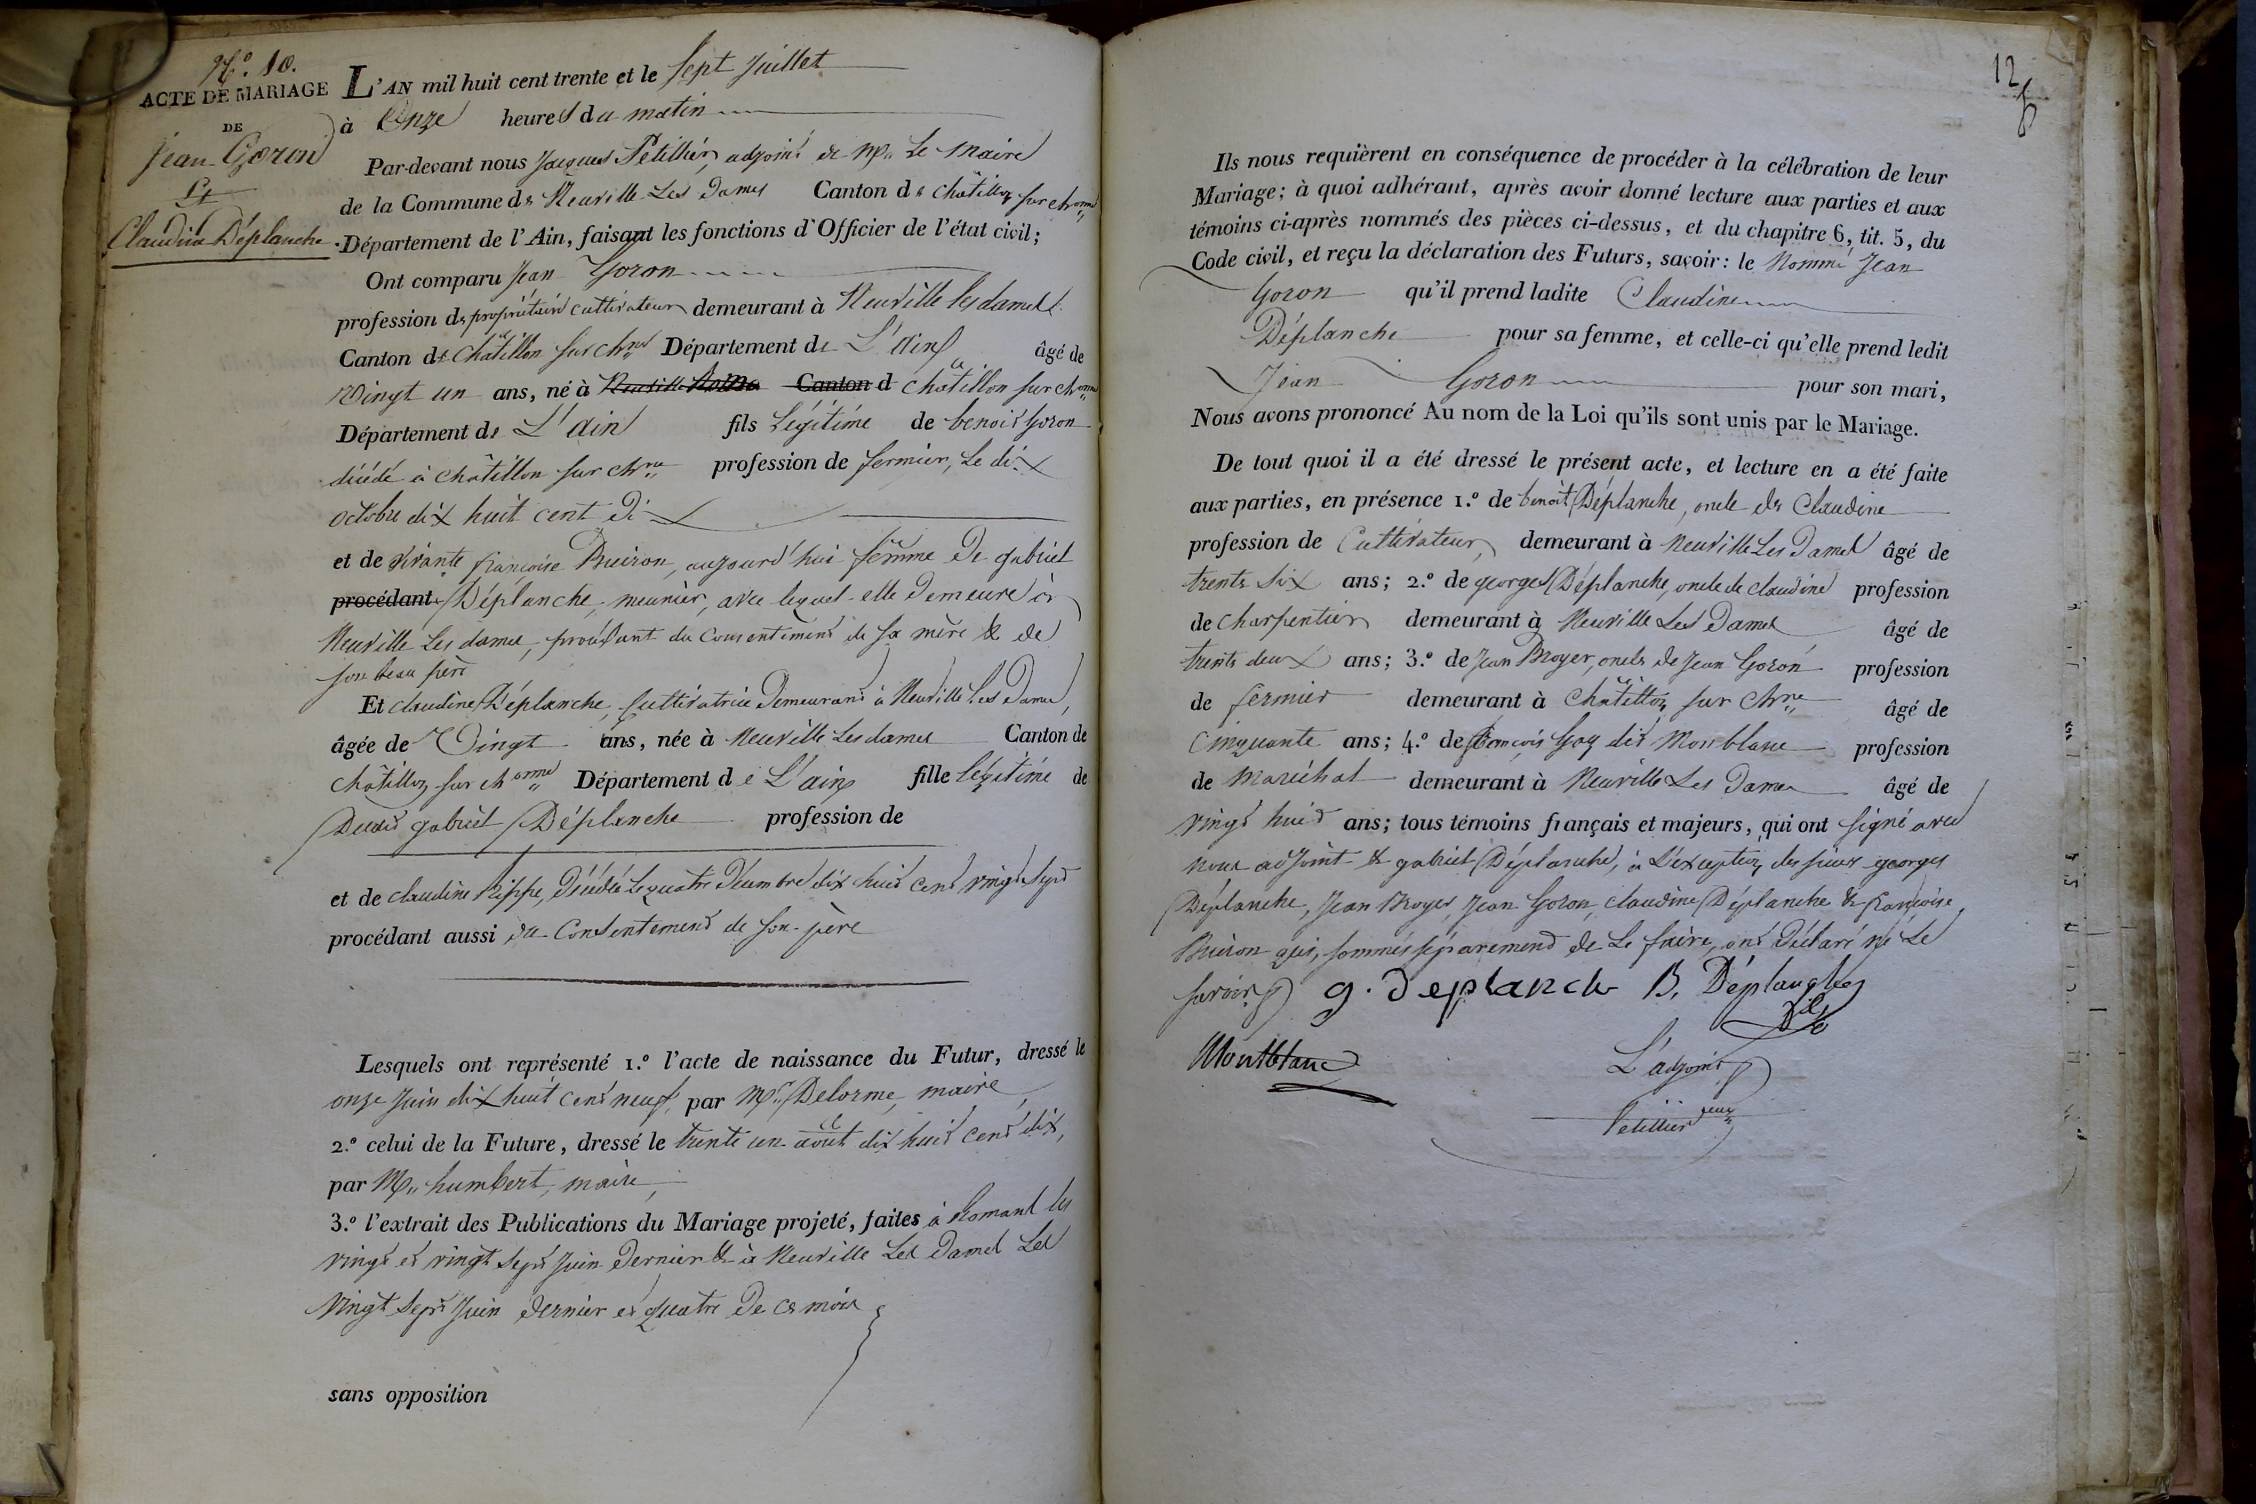 N.º 10.
ACTE DE MARIAGE
DE
Jean Goron
Et
Claudine Déplanche
L'AN mil huit cent trente et le Sept Juillet
à Onze heures du matin
Par-devant nous Jacques Petillier, adjoint de Mr. Le Maire
de la Commune de Neuville Les Dames Canton de Châtillon sur Chronne
Département de l'Ain, faisant les fonctions d'Officier de l'état civil;
Ont comparu Jean Goron
profession de propriétaire cultivateur demeurant à Neuville les dames
Canton de Châtillon sur Chrne Département de L'ain âgé de
Vingt un ans, né à Canton d à Châtillon sur Chronne
Département de L'ain fils légitime de benoit Goron
décédé à Châtillon sur Chrne profession de fermier, Le dix
octobre dix huit cent dix
et de vivante françoise Buiron, aujourd'hui femme de gabriel
procédant Déplanche, meunier, avec lequel elle demeure à
Neuville Les dames, procédant du consentement de sa mère & de
son beau père
Et claudine Déplanche, Cultivatrice Demeurant à Neuville Les Dames,
âgée de Vingt ans, née à Neuville Les dames Canton de
Châtillon sur Chronne Département de L'ain fille légitime de
Dudit gabriel Déplanche profession de
et de claudine Rippe, Décédée Le quatre Décembre dix huit cent vingt Sept
procédant aussi du Consentement de son père
Lesquels ont représenté 1.º l'acte de naissance du Futur, dressé le
onze Juin dix huit cent neuf, par Mr. Delorme, maire,
2.º celui de la Future, dressé le trente un août dix huit cent dix,
par Mr. humbert, maire,
3.º l'extrait des Publications du Mariage projeté, faites à Romans les
vingt et vingt Sept Juin Dernier & à Neuville Les Dames Les
Vingt Sept Juin dernier et quatre de ce mois
sans opposition
12
Ils nous requièrent en conséquence de procéder à la célébration de leur
Mariage; à quoi adhérant, après avoir donné lecture aux parties et aux
témoins ci-après nommés des pièces ci-dessus, et du chapitre 6, tit. 5, du
Code civil, et reçu la déclaration des Futurs, savoir: le Nommé Jean
Goron qu'il prend ladite Claudine
Déplanche pour sa femme, et celle-ci qu'elle prend ledit
Jean Goron pour son mari,
Nous avons prononcé Au nom de la Loi qu'ils sont unis par le Mariage.
De tout quoi il a été dressé le présent acte, et lecture en a été faite
aux parties, en présence 1.º de benoit Déplanche, oncle de Claudine
profession de Cultivateur, demeurant à Neuville Les Dames âgé de
trente Six ans; 2.º de georges Déplanche, oncle de claudine profession
de charpentier demeurant à Neuville Les Dames âgé de
trente deux ans; 3.º de Jean Broyer, oncle de Jean Goron profession
de fermier demeurant à Châtillon sur Chrne âgé de
Cinquante ans; 4.º de françois Goy dit Monblanc profession
de Maréchal demeurant à Neuville Les Dames âgé de
vingt huit ans; tous témoins français et majeurs, qui ont signé avec
nous adjoint & gabriel Déplanche, à L'exception des sieurs georges
Déplanche, Jean Broyer, Jean Goron, claudine Déplanche & françoise
Buiron qui, sommés séparement de Le faire, ont Déclaré ne Le
savoir
g. deplanche B. Déplanche
Montblanc
L'adjoint
Petillier